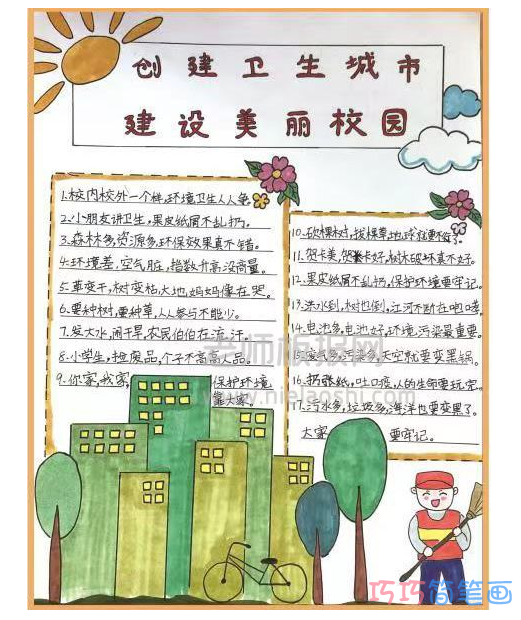 创建卫生城市
建设美丽校园
1.校内校外一个样,环境卫生人人争。
2.小朋友讲卫生,果皮纸屑不乱扔。
3.森林多资源多环保效果真不错。
4.环境差,空气脏,指数升高没商量。
5.草变干,树变枯大地,妈妈像在哭。
6.要种树,要种草,人人参与不能少。
7.发大水,闹干旱,农民伯伯在流汗。
8.小学生,捡废品,个子不高高人品。
9.你家,我家,保护环境
靠大家。
10.砍棵树,拔棵草,地球在更不好了。
11.贺卡美,贺卡好,树木破坏真不好。
12.果皮纸屑不乱扔,保护环境要牢记。
13.涨水到,树也倒,江河不断在咆哮。
14.电池多,电池好,环境污染最重要。
15.废气多,污染多,天空就要变黑锅。
16.扔张纸,吐口痰,人的生命要玩完。
17.污水多,垃圾多,海洋也要变黑了。
大家 要牢记。
老师板报网
www.nielaoshi.com
巧巧简笔画